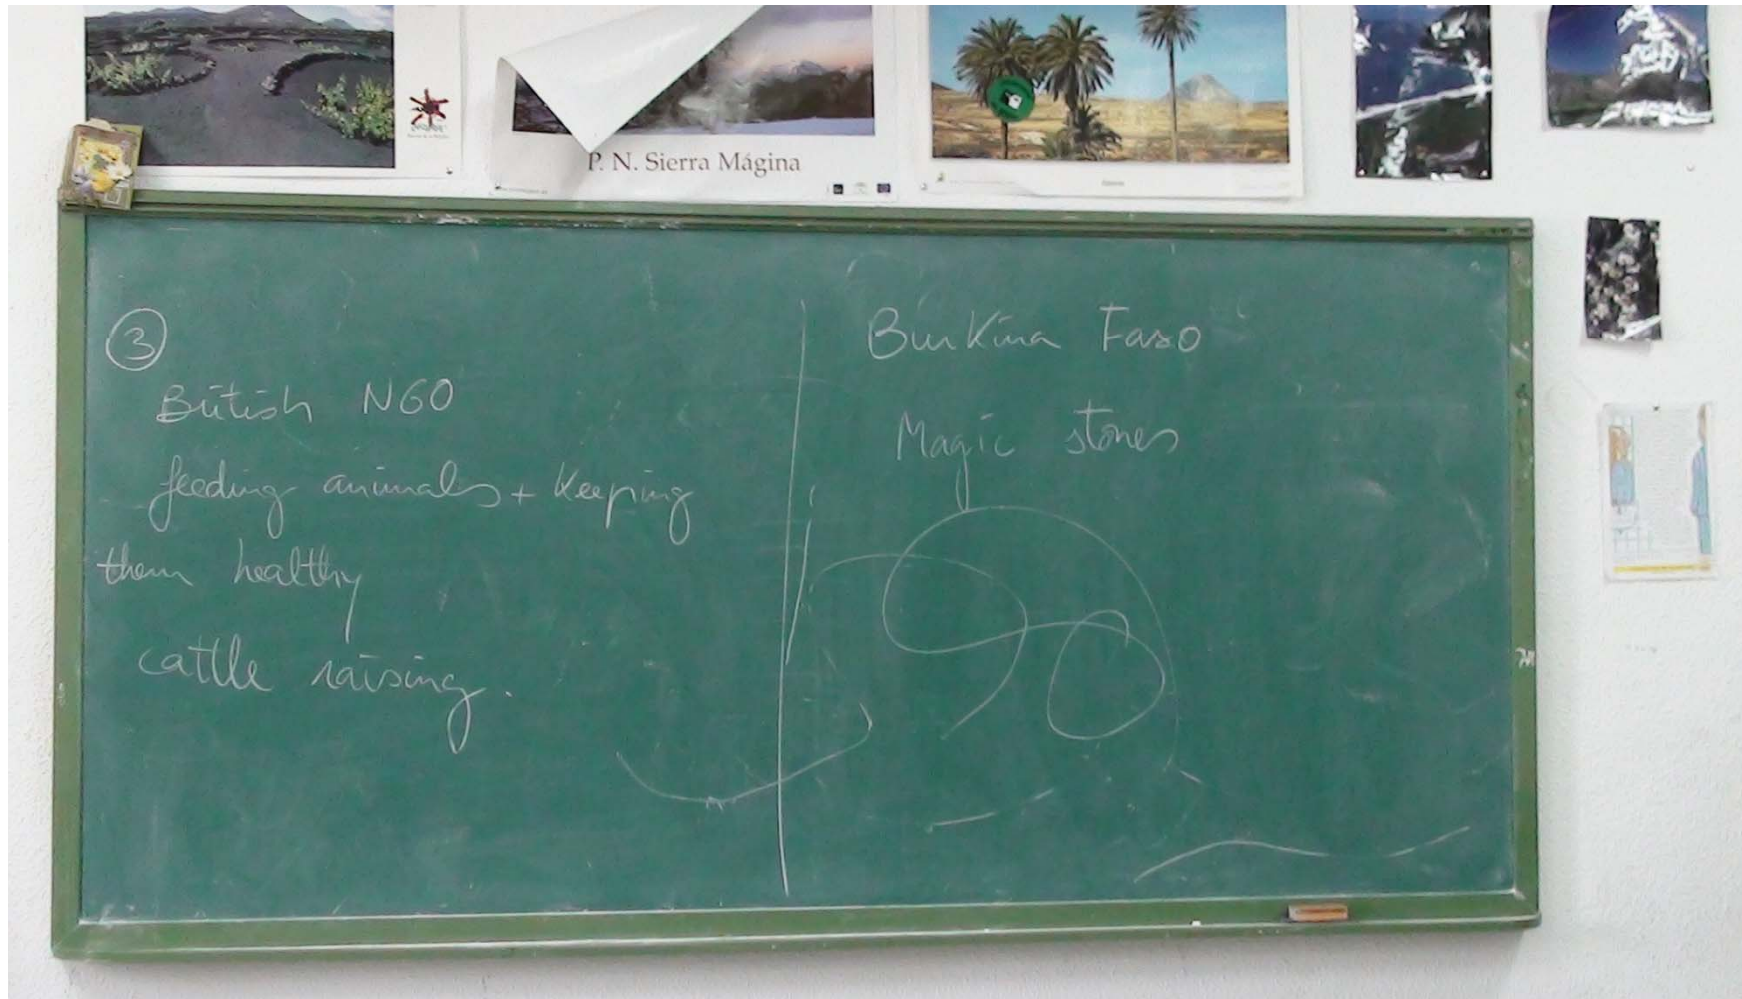 P. N. Sierra Mágina
③
British NGO
feeding animals + Keeping
them healthy
cattle raising.
Burkina Faso
Magic stones